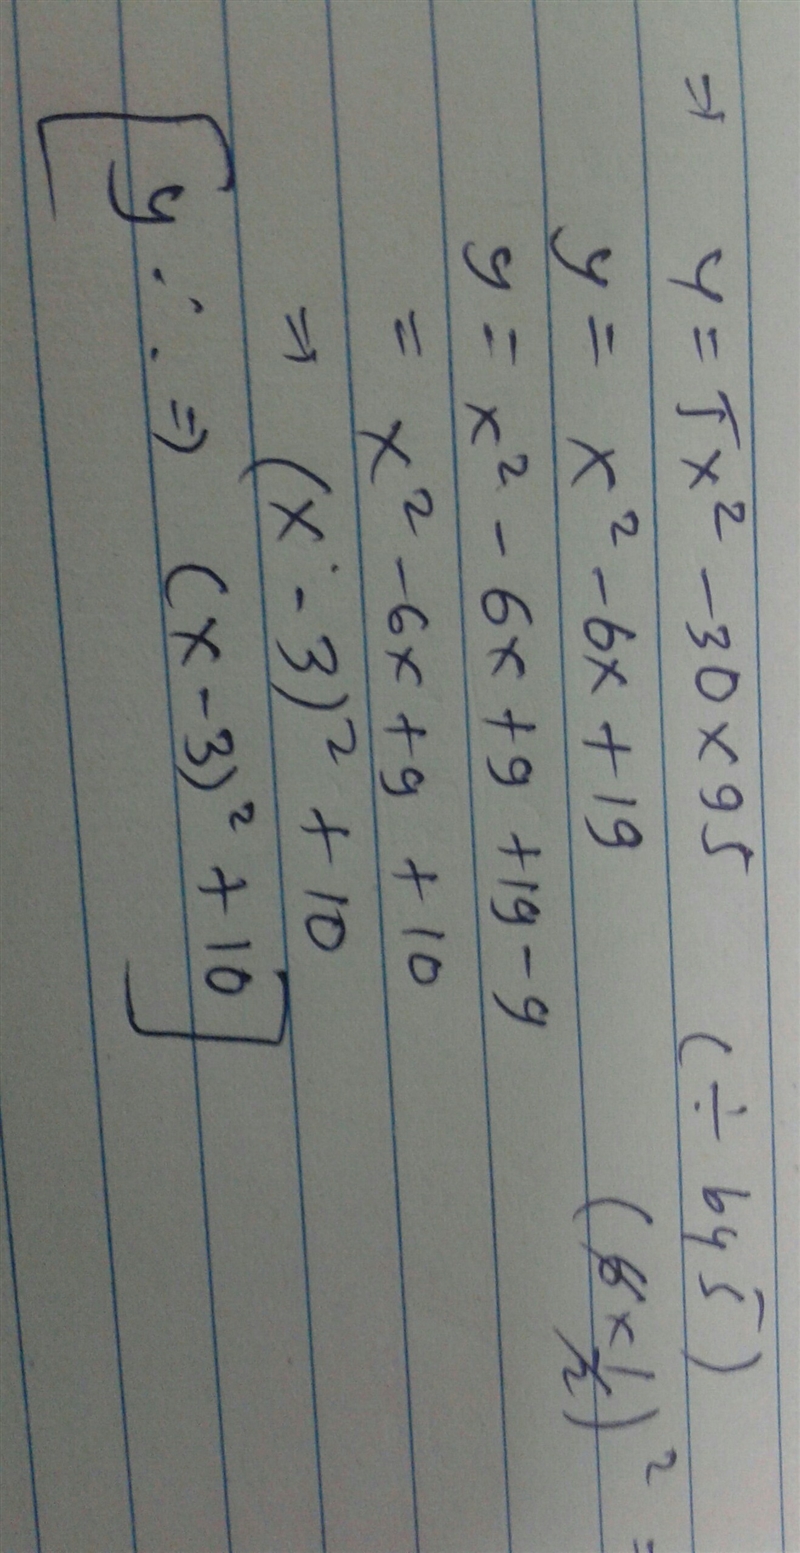 ⇒ y = 5x² - 30x95 (÷ by 5)
y = x² - 6x + 19 (6 x 1/2)² =
y = x² - 6x + 9 + 19 - 9
= x² - 6x + 9 + 10
⇒ (x - 3)² + 10
y ∴ ⇒ (x - 3)² + 10